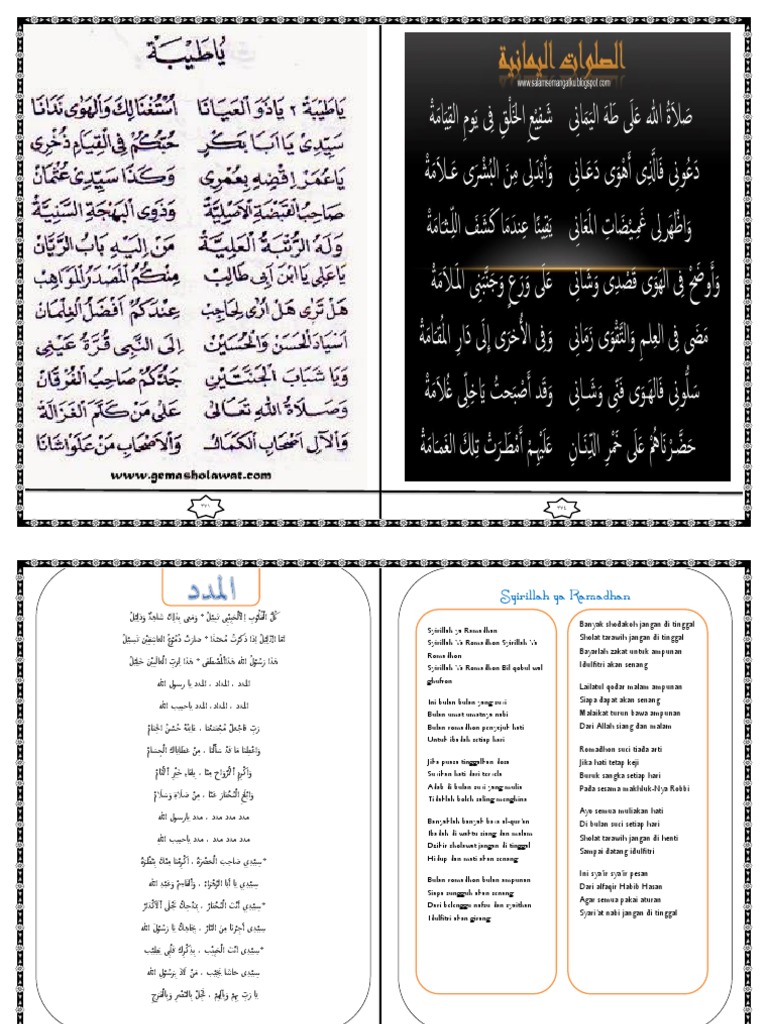 يَا طَيْبَة
يَا طَيْبَة ٢ يَا ذَوَ الْعَيَانَا اشْتَقْنَالِكْ وَالْهَوَى نَدَانَا
سَيِّدِى يَا اَبَا بَكْرٍ حُبُّكُمْ فِى الْقِيَامِ ذُخْرِى
يَا عُمَرْ اِقْضِهِ بِعُمْرِى وَكَذَا سَيِّدِى عُثْمَانْ
صَاحِبُ الْقَبْضَةِ الْاَصْلِيَّةْ وَذَوِى الْبَهْجَةِ السَّنِيَّةْ
وَلَهُ الرُّتْبَةُ الْعَلِيَّةْ مَنْ اِلَيْهِ بَابُ الرَّيَّانْ
يَا عَلِى يَا ابْنَ اَبِى طَالِبْ مِنْكُمُ الْمَصْدَرُ الْمَوَاهِبْ
هَلْ تَرَى هَلْ اُرَى لِحَاجِبْ عِنْدَكُمْ اَفْضَلُ الْغِلْمَانْ
اَسْيَادِ الْحَسَنْ وَالْحُسَيْنْ اِلَى النَّبِى قُرَّةُ عَيْنِى
وَيَا شَبَابَ الْجَنَّتَيْنِ جَدُّكُمْ صَاحِبُ الْفُرْقَانْ
وَصَلَاةُ اللهِ تَعَالَى عَلَى مَنْ كَلَّمَ الْغَزَالَةْ
وَالْآلِ اَصْحَابِ الْكَمَالْ وَالْاَصْحَابِ مَنْ عَلَوْا شَانَا
www.gemasholawat.com
٣٦١
الصلوات اليمانية
www.salamsemangatku.blogspot.com
صَلَاةُ الله عَلَى طَهَ الْيَمَانِى شَفِيْعِ الْخَلْقِ فِى يَوْمِ الْقِيَامَةْ
دَعُونِى فَالَّذِى أَهْوَى دَعَانِى وَأَبْدَلِى مِنَ الْبُشْرَى عَلَامَةْ
وَاظْهَرلِى غَمِيْضَاتِ الْمَعَانِى يَقِيْنًا عِنْدَمَا كَشَفَ اللِّثَامَةْ
وَأَوْضَحْ فِى الْهَوَى قَصْدِى وَشَانِى عَلَى وَرَعٍ وَجَنَّبْنِى الْمَلَامَةْ
مَضَى فِى الْعِلْمِ وَالتَّقْوَى زَمَانِى وَفِى الْأُخْرَى إِلَى دَارِ الْمُقَامَةْ
سَلُونِى فَالْهَوَى فَنِّى وَشَانِى وَقَدْ أَصْبَحتُ يَاخِلِّى غُلَامَةْ
حَضَّرْنَاهُمْ عَلَى خَمْرِ الدِّنَانِ عَلَيْهِمْ أَمْطَرَتْ تِلْكَ الْغَمَامَةْ
٣٦٤
المدد
كُلُّ الْقُلُوْبِ اِلَى الْحَبِيْبِ تَمِيْلُ * وَمَعِى بِذَلِكَ شَاهِدٌ وَدَلِيْلُ
اَمَّا الدَّلِيْلُ اِذَا ذَكَرْتَ مُحَمَّدًا * صَارَتْ دُمُوْعُ الْعَاشِقِيْنَ تَسِيْلُ
هَذَا رَسُوْلُ اللهِ هَذَا الْمُصْطَفَى * هَذَا لِرَبِّ الْعَالَمِيْنَ خَلِيْلُ
المدد ، المداد ، المدد يا رسول الله
المدد ، المداد ، المدد ياحبيب الله
رَبِّ فَاجْعَلْ مُجْتَمَعْنَا ، غَايَتُهُ حُسْنُ الْخِتَامْ
وَاعْطِنَا مَا قَدْ سَأَلْنَا ، مِنْ عَطَايَاكَ الْجِسَامْ
وَأَكْرِمِ الْأَرْوَاحَ مِنَّا ، بِلِقَاءِ خَيْرِ الْأَنَامْ
وَابْلِغِ الْمُخْتَارَ عَنَّا ، مِنْ صَلَاةٍ وَسَلَامْ
مدد مدد مدد ، مدد يارسول الله
مدد مدد مدد ، مدد ياحبيب الله
*سِيْدِي صَاحِبَ الْحَضْرَةْ ، أَكْرِمْنَا مِنْكَ بِنَظْرَةْ
سِيْدِي يَا أَبَا الزَّهْرَاءْ ،
*سِيْدِي أَنْتَ الْمُخْتَارْ ،
سِيْدِي أَجِرْنَا مِنَ النَّارْ ، بِجَاهِكَ يَا رَسُوْلَ الله
*سِيْدِي انْتَ الْحَبِيْبْ ، بِذِكْرِكَ قَلْبِي يَطِيْبْ
سِيْدِي حَاشَا يَخِيْبْ ، مَنْ لَاذَ بِرَسُوْلِ الله
يَا رَبِّ بِهِمْ وَبِآلِهِمْ ، عَجِّلْ بِالنَّصْرِ وَبِالْفَرَجِ
Syirillah ya Ramadhan
Syirillah ya Ramadhan
Syirillah Ya Ramadhon Syirillah Ya
Ramadhon
Syirillah Ya Ramadhon Bil qobul wal
ghufron
Ini bulan bulan yang suci
Bulan umat umatnya nabi
Bulan romadhon penyejuk hati
Untuk ibadah setiap hari
Jika puasa tinggalkan dosa
Sucikan hati dari tercela
Adab di bulan suci yang mulia
Tidaklah boleh saling menghina
Banyaklah banyak baca al-qur'an
Ibadah di waktu siang dan malam
Dzikir sholawat jangan di tinggal
Hidup dan mati akan senang
Bulan romadhon bulan ampunan
Siapa sungguh akan senang
Dari belenggu nafsu dan syaitan
Idulfitri akan girang
Banyak shodakoh jangan di tinggal
Sholat tarawih jangan di tinggal
Bayarlah zakat untuk ampunan
Idulfitri akan senang
Lailatul qodar malam ampunan
Siapa dapat akan senang
Malaikat turun bawa ampunan
Dari Allah siang dan malam
Romadhon suci tiada arti
Jika hati tetap keji
Buruk sangka setiap hari
Pada sesama makhluk-Nya Robbi
Ayo semua muliakan hati
Di bulan suci setiap hari
Sholat tarawih jangan di henti
Sampai datang idulfitri
Ini sya'ir sya'ir pesan
Dari alfaqir Habib Hasan
Agar semua pakai aturan
Syari'at nabi jangan di tinggal